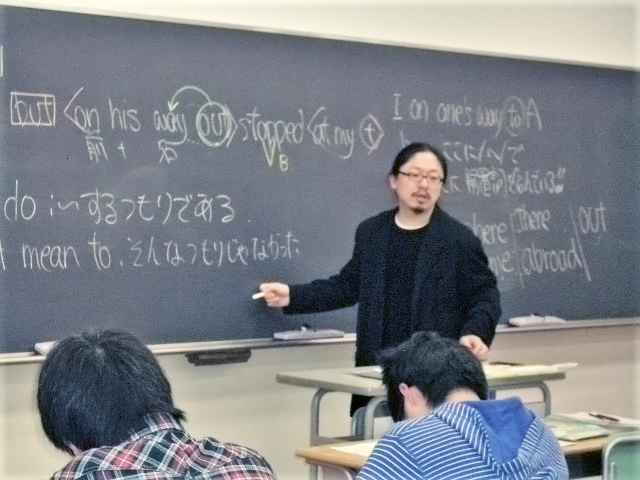 but 〈on his way out〉 stopped 〈at my
前 + 名 V B
do ... するつもりである.
mean to. そんなつもりじゃなかった
I on one's way to A
here there out
abroad